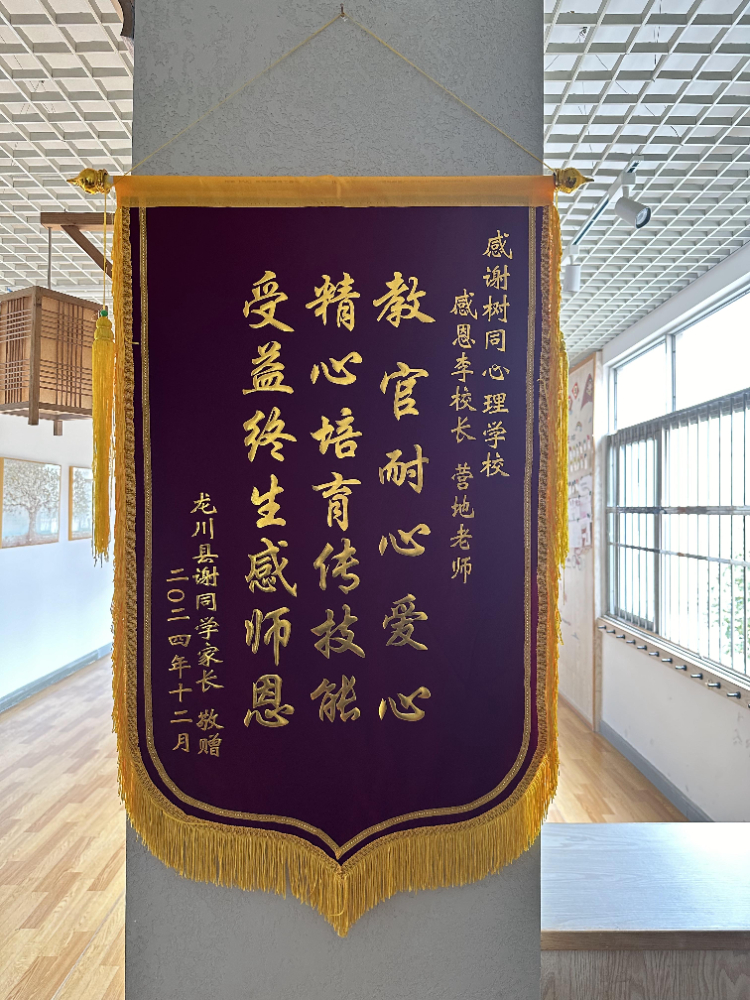 感谢树同心理学校
感恩李校长 营地老师
教官耐心爱心
精心培育传技能
受益终生感师恩
龙川县谢同学家长 敬赠
二〇二四年十二月